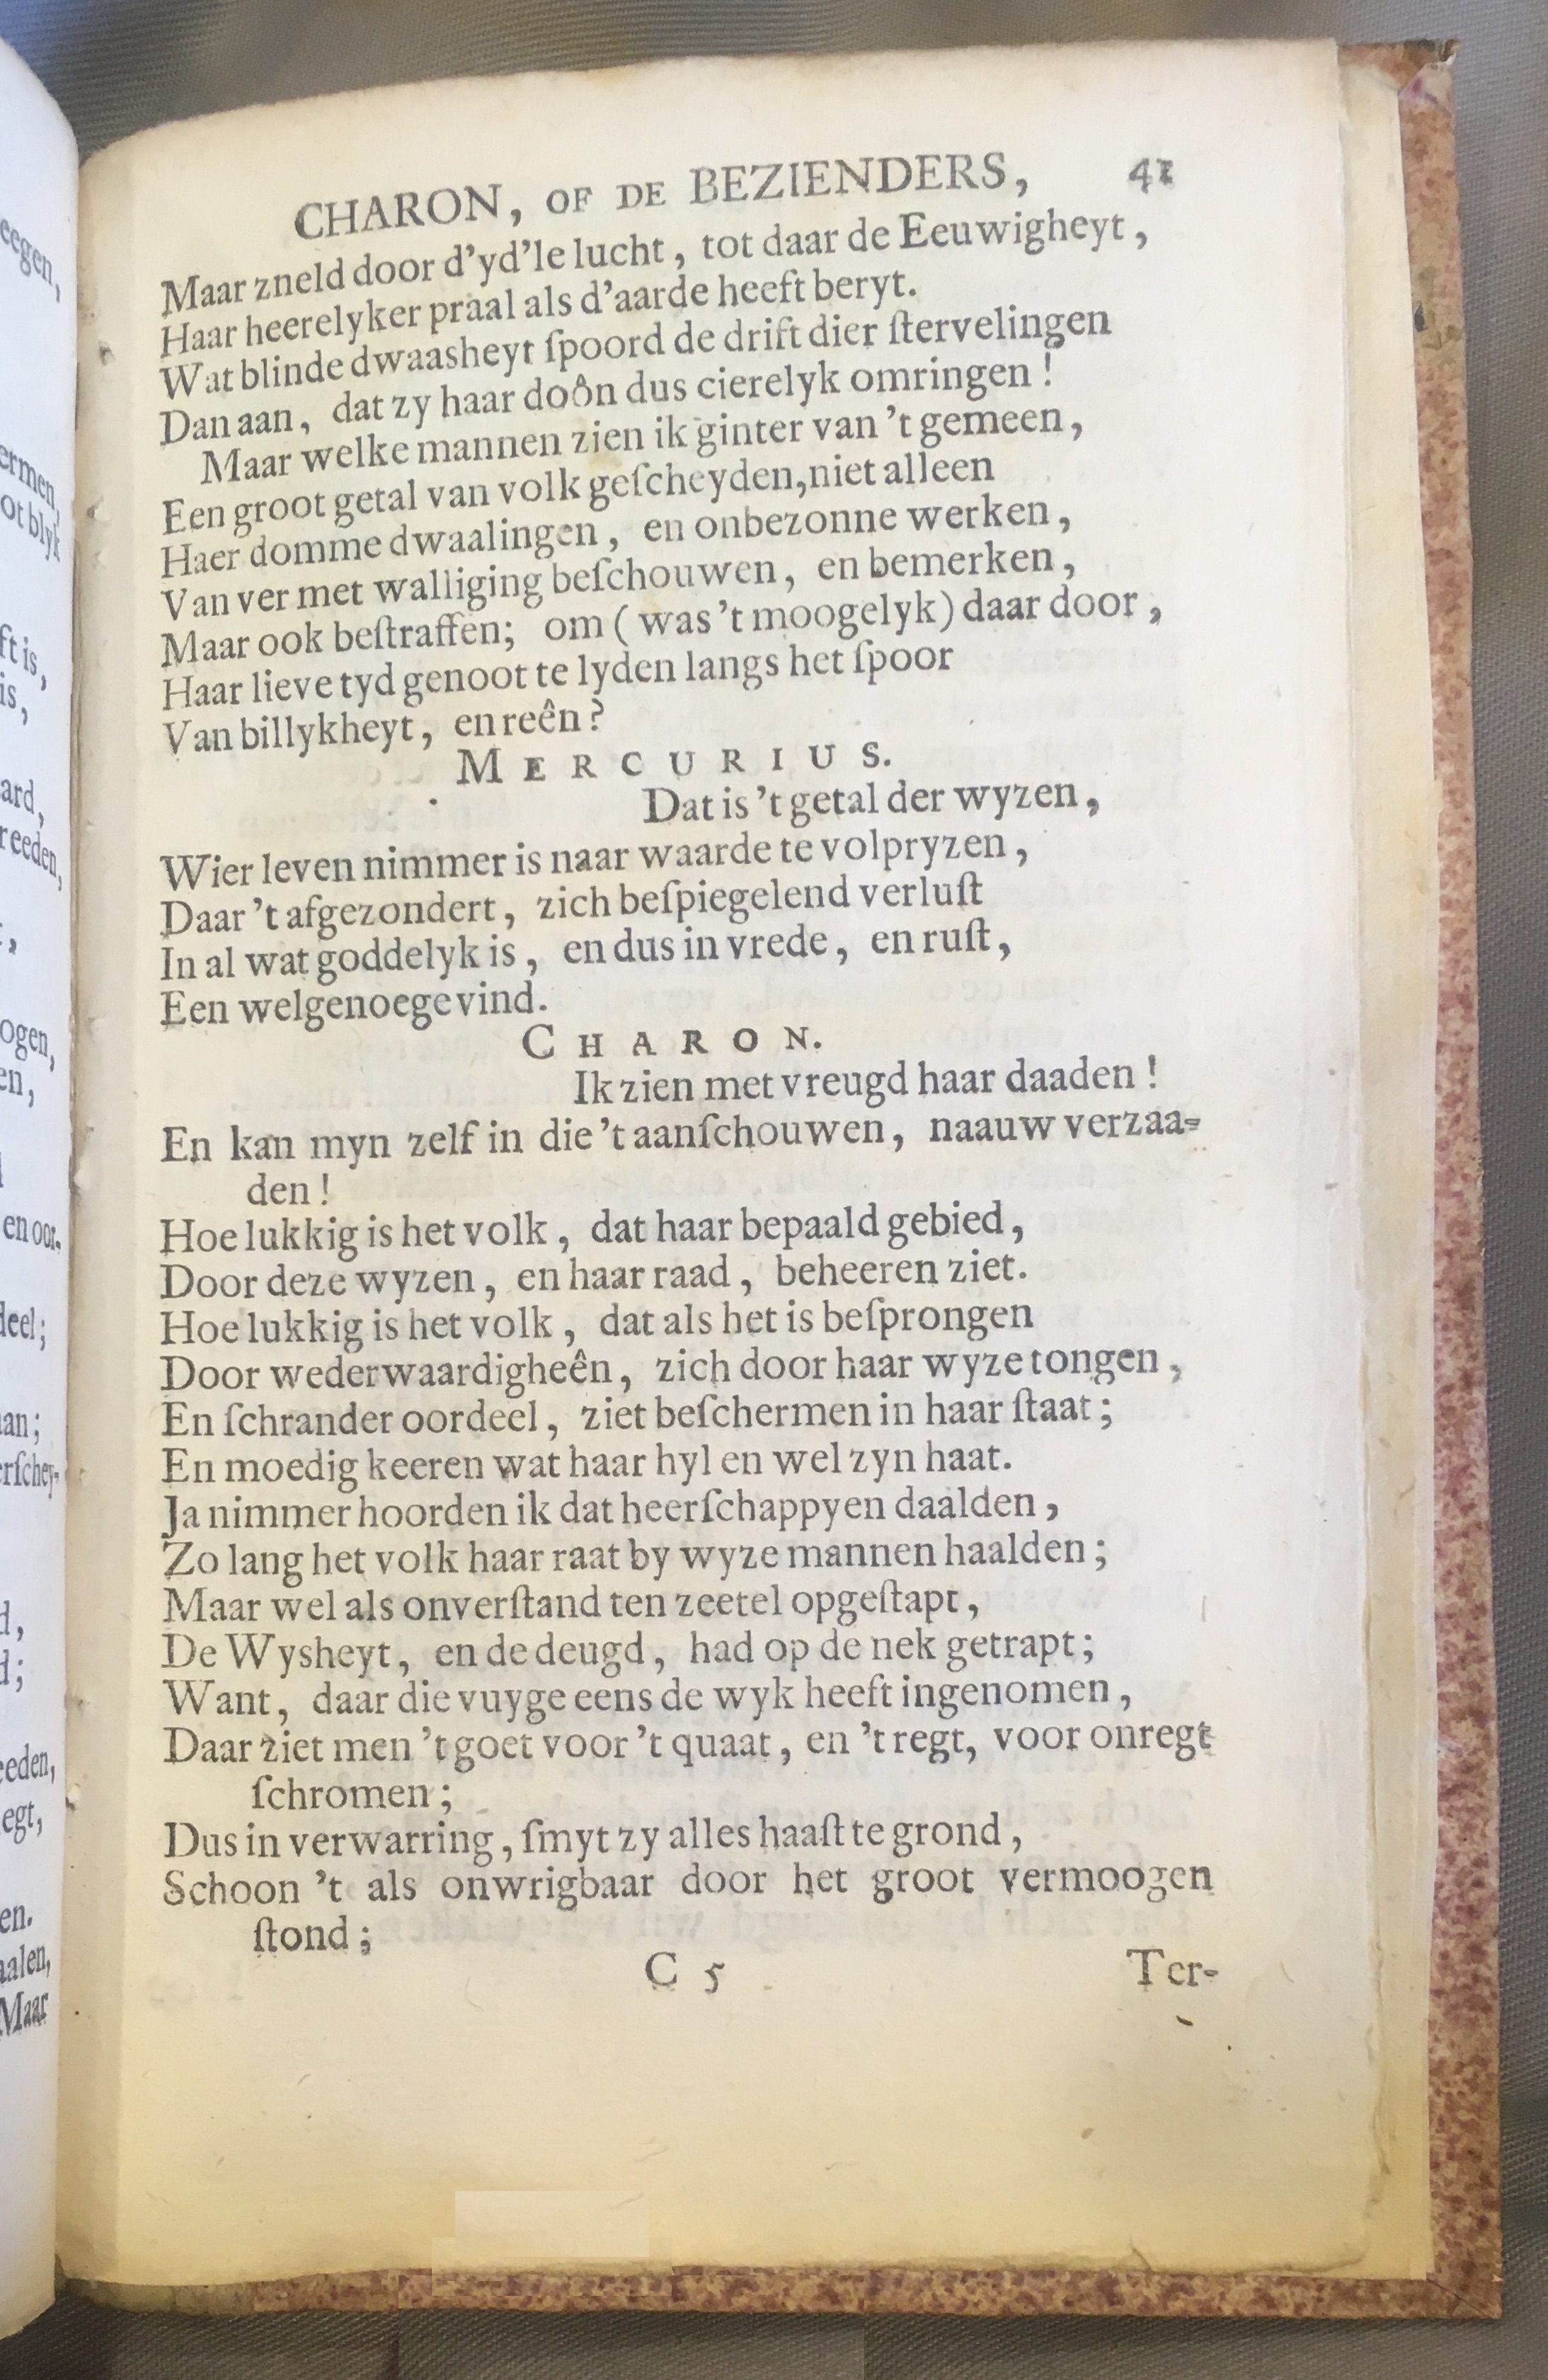 CHARON, OF DE BEZIENDERS, 41
Maar zneld door d'yd'le lucht, tot daar de Eeuwigheyt,
Haar heerelyker praal als d'aarde heeft beryt.
Wat blinde dwaasheyt ſpoord de drift dier ſtervelingen
Dan aan, dat zy haar doôn dus cierelyk omringen!
Maar welke mannen zien ik ginter van 't gemeen,
Een groot getal van volk geſcheyden, niet alleen
Haer domme dwaalingen, en onbezonne werken,
Van ver met walliging beſchouwen, en bemerken,
Maar ook beſtraffen; om (was 't moogelyk) daar door,
Haar lieve tyd genoot te lyden langs het ſpoor
Van billykheyt, en reên?
MERCURIUS.
Dat is 't getal der wyzen,
Wier leven nimmer is naar waarde te volpryzen,
Daar 't afgezondert, zich beſpiegelend verluſt
In al wat goddelyk is, en dus in vrede, en ruſt,
Een welgenoege vind.
CHARON.
Ik zien met vreugd haar daaden!
En kan myn zelf in die 't aanſchouwen, naauw verzaa-
den!
Hoe lukkig is het volk, dat haar bepaald gebied,
Door deze wyzen, en haar raad, beheeren ziet.
Hoe lukkig is het volk, dat als het is beſprongen
Door wederwaardigheên, zich door haar wyze tongen,
En ſchrander oordeel, ziet beſchermen in haar ſtaat;
En moedig keeren wat haar hyl en wel zyn haat.
Ja nimmer hoorden ik dat heerſchappyen daalden,
Zo lang het volk haar raat by wyze mannen haalden;
Maar wel als onverſtand ten zeetel opgeſtapt,
De Wysheyt, en de deugd, had op de nek getrapt;
Want, daar die vuyge eens de wyk heeft ingenomen,
Daar ziet men 't goet voor 't quaat, en 't regt, voor onregt
ſchromen;
Dus in verwarring, ſmyt zy alles haaſt te grond,
Schoon 't als onwrigbaar door het groot vermoogen
ſtond;
C 5 Ter-